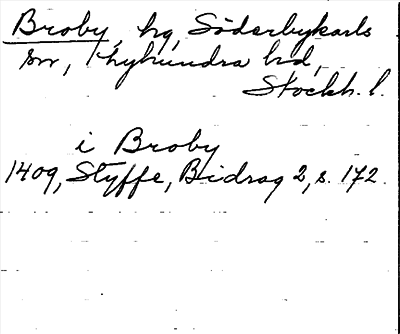 Broby, hg, Söderbykarls
sn, Lyhundra hd,
Stockh. l.
i Broby
1409, Styffe, Bidrag 2, s. 172.